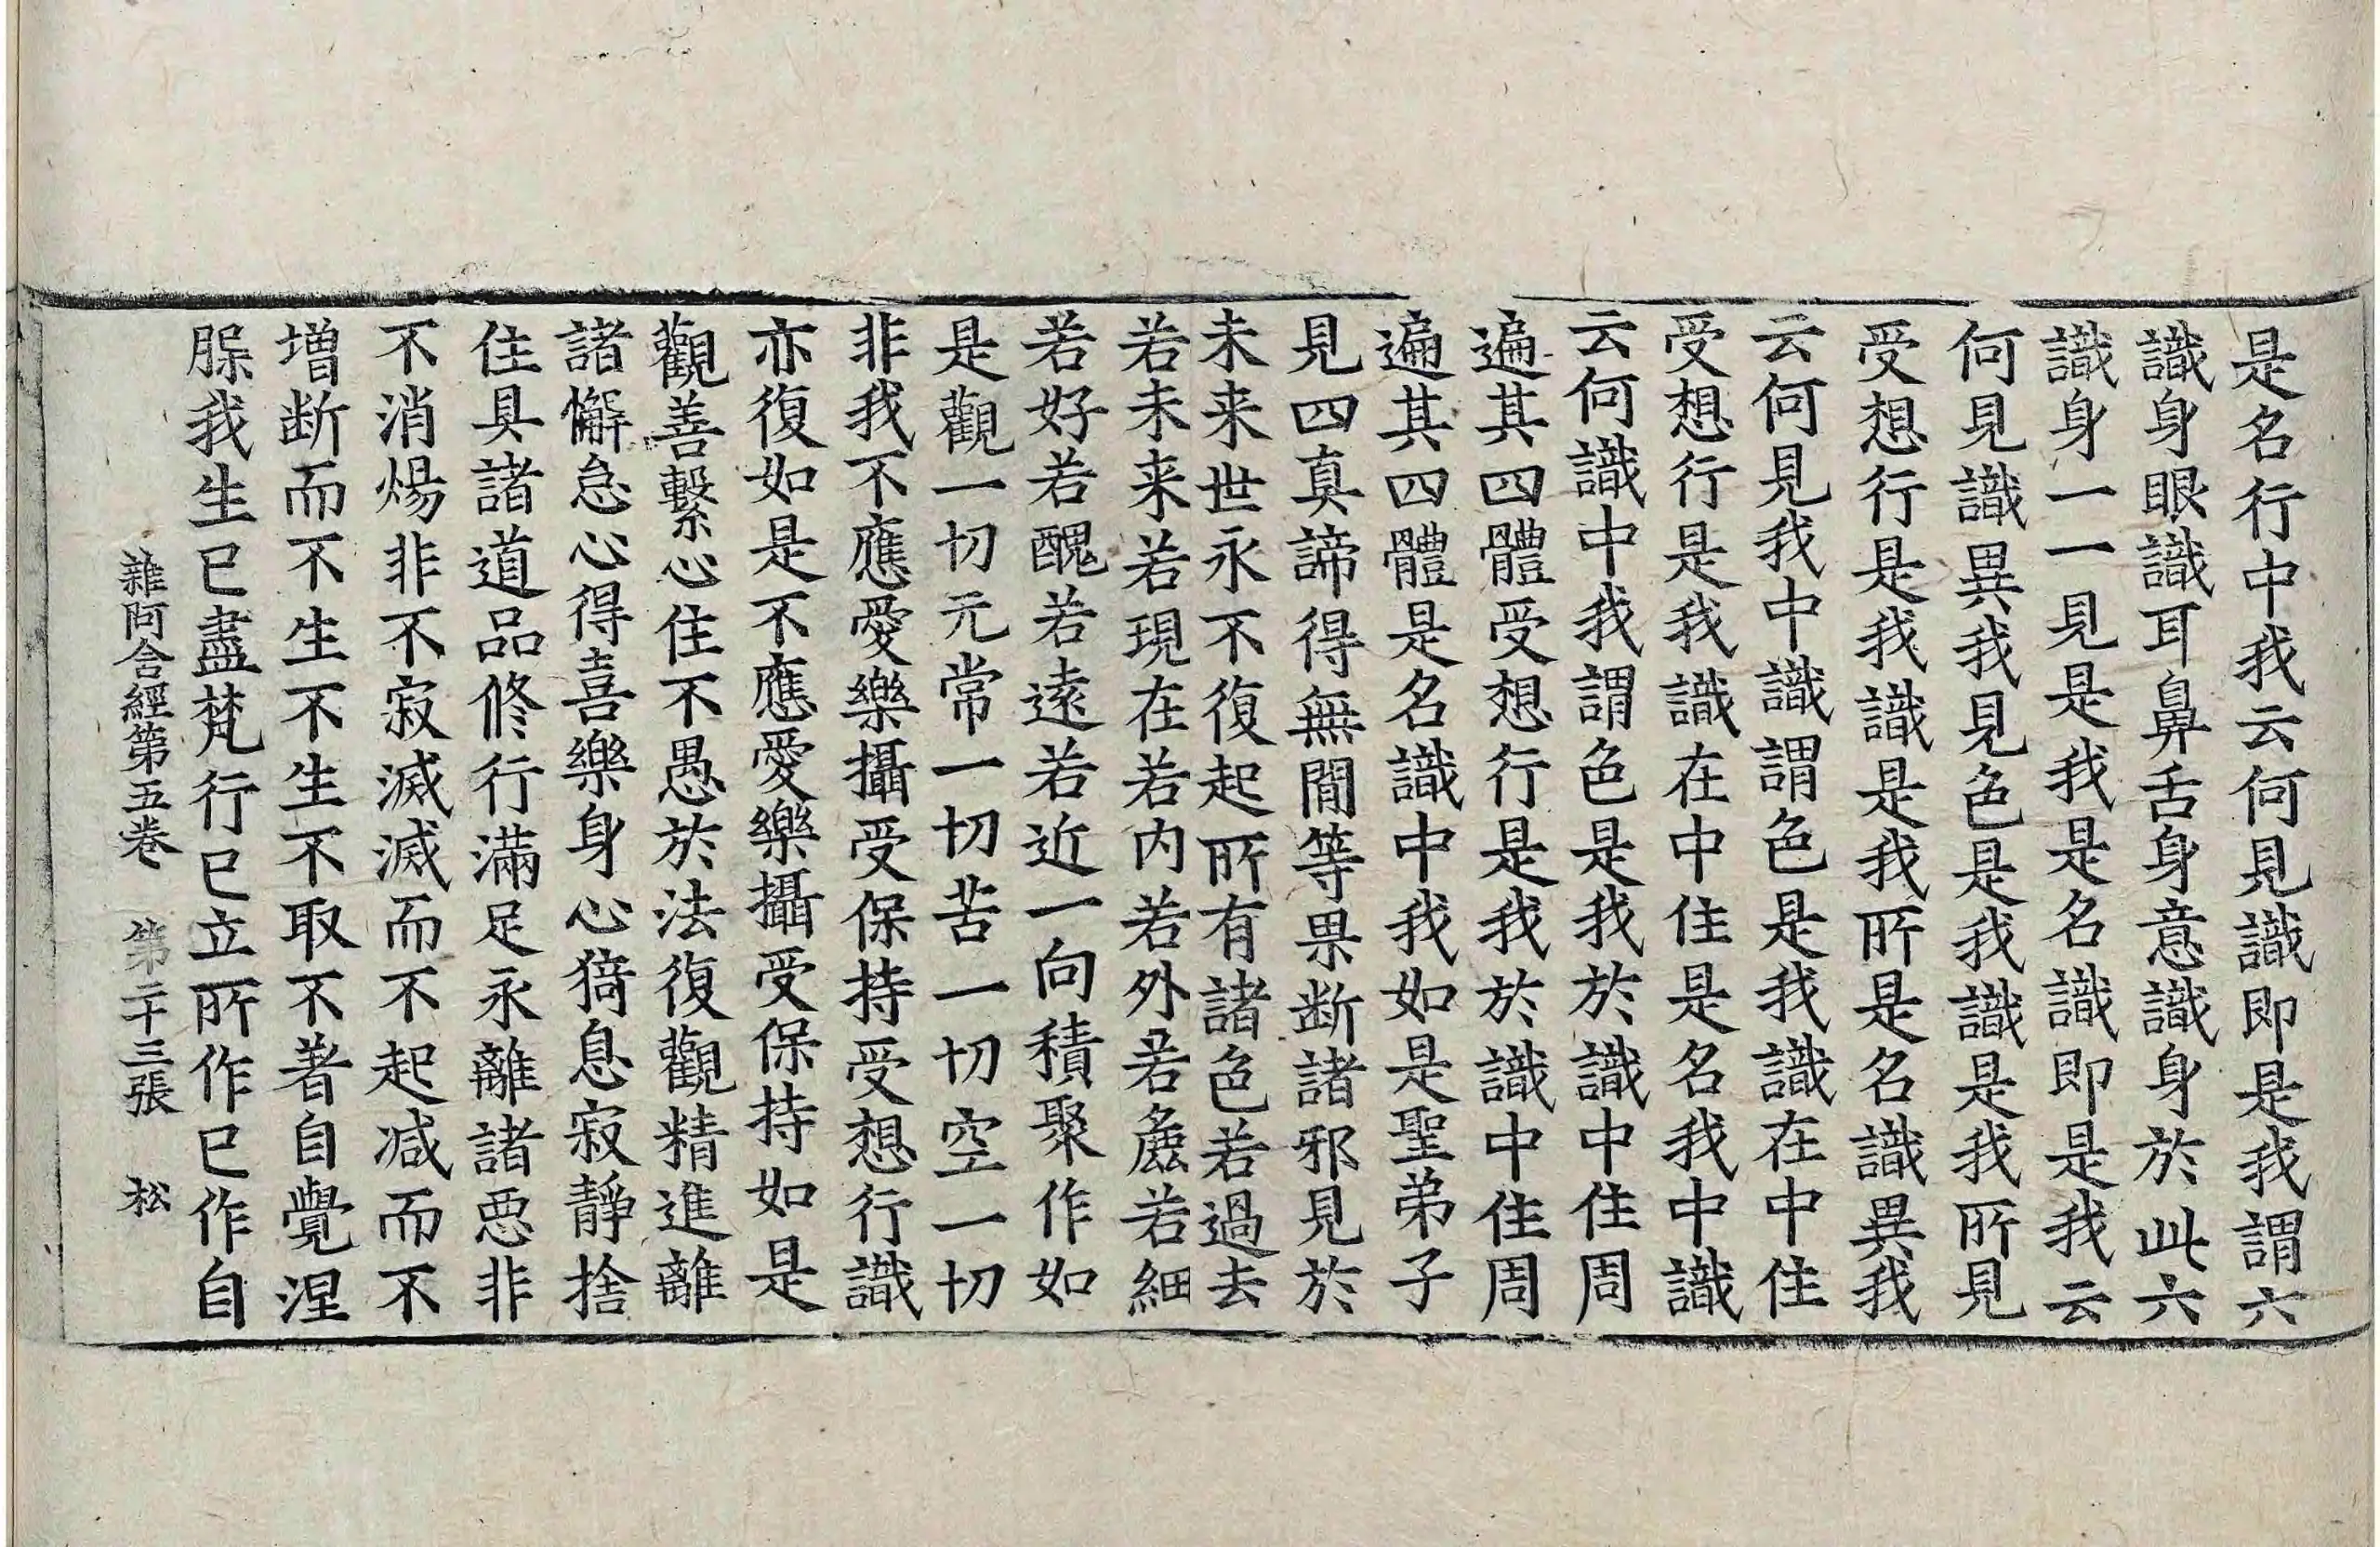 是名行中我云何見識即是我謂六
識身眼識耳鼻舌身意識身於此六
識身一一見是我是名識即是我云
何見識異我見色是我識是我所見
受想行是我識是我所是名識異我
云何見我中識謂色是我識在中住
受想行是我識在中住是名我中識
云何識中我謂色是我於識中住周
遍其四體受想行是我於識中住周
遍其四體是名識中我如是聖弟子
見四真諦得無間等果断諸邪見於
未来世永不復起所有諸色若過去
若未来若現在若内若外若麁若細
若好若醜若遠若近一向積聚作如
是觀一切元常一切苦一切空一切
非我不應愛樂攝受保持受想行識
亦復如是不應愛樂攝受保持如是
觀善繫心住不愚於法復觀精進離
諸懈怠心得喜樂身心猗息寂靜捨
住具諸道品修行滿足永離諸悪非
不消煬非不寂滅滅而不起減而不
增断而不生不生不取不著自覺涅
脲我生已盡梵行已立所作已作自
雜阿含經第五卷 第二十三張 松